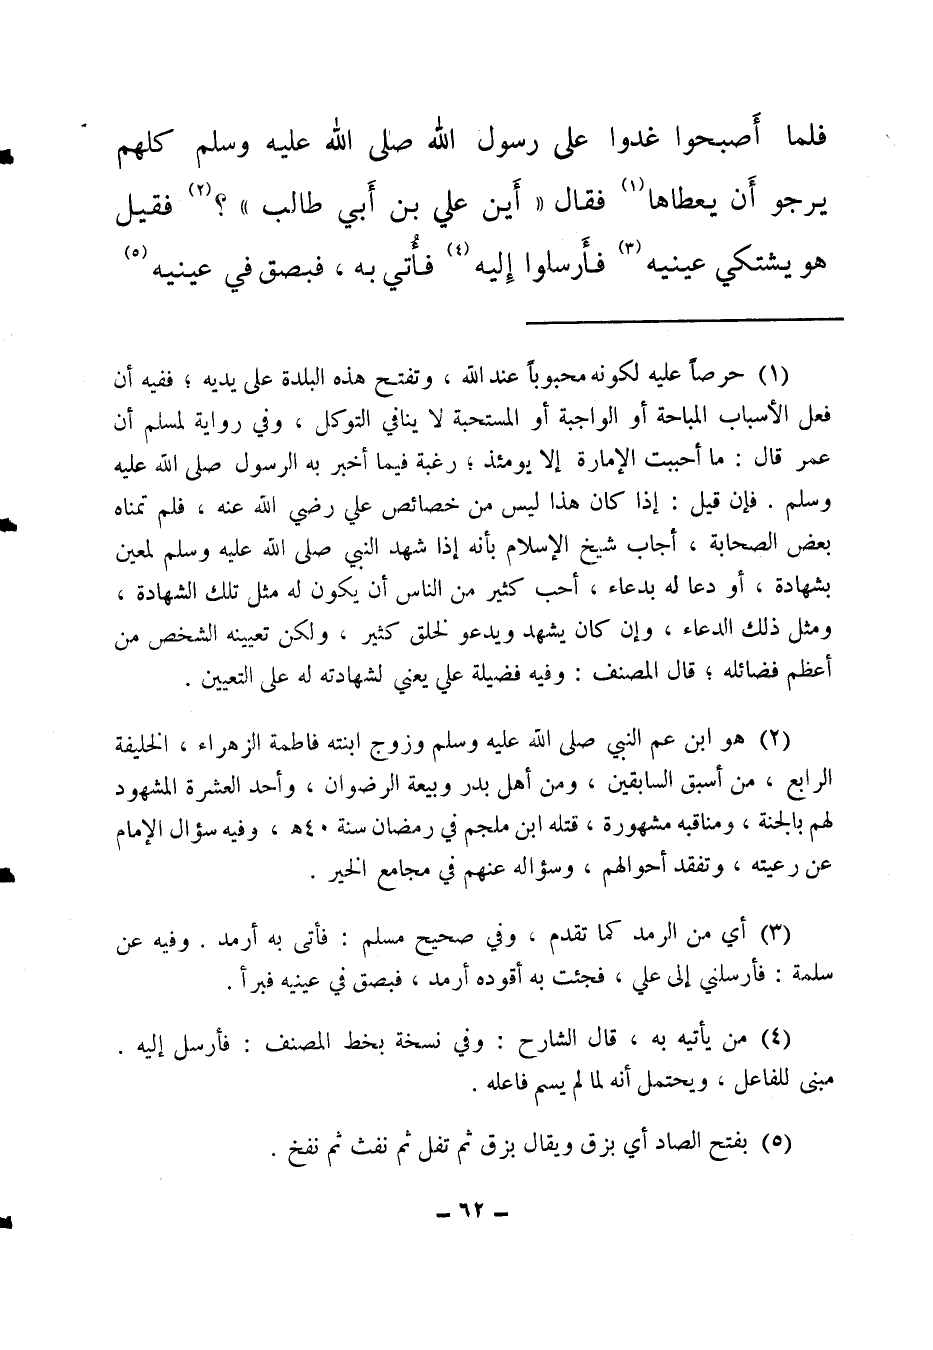 فلما أَصبحوا غدوا على رسول الله صلى الله عليه وسلم كلهم
يرجو أَن يعطاها(١) فقال « أَين علي بن أَبي طالب » ؟(٢) فقيل
هو يشتكي عينيه(٣) فأَرسلوا إِليه(٤) فأُتي به ، فبصق في عينيه(٥)
(١) حرصاً عليه لكونه محبوباً عند الله ، وتفتح هذه البلدة على يديه ؛ ففيه أن
فعل الأسباب المباحة أو الواجبة أو المستحبة لا ينافي التوكل ، وفي رواية لمسلم أن
عمر قال : ما أحببت الإمارة إلا يومئذ ؛ رغبة فيما أخبر به الرسول صلى الله عليه
وسلم . فإن قيل : إذا كان هذا ليس من خصائص علي رضي الله عنه ، فلم تمناه
بعض الصحابة ، أجاب شيخ الإسلام بأنه إذا شهد النبي صلى الله عليه وسلم لمعين
بشهادة ، أو دعا له بدعاء ، أحب كثير من الناس أن يكون له مثل تلك الشهادة ،
ومثل ذلك الدعاء ، وإن كان يشهد ويدعو لخلق كثير ، ولكن تعيينه الشخص من
أعظم فضائله ؛ قال المصنف : وفيه فضيلة علي يعني لشهادته له على التعيين .
(٢) هو ابن عم النبي صلى الله عليه وسلم وزوج ابنته فاطمة الزهراء ، الخليفة
الرابع ، من أسبق السابقين ، ومن أهل بدر وبيعة الرضوان ، وأحد العشرة المشهود
لهم بالجنة ، ومناقبه مشهورة ، قتله ابن ملجم في رمضان سنة ٤٠ه ، وفيه سؤال الإمام
عن رعيته ، وتفقد أحوالهم ، وسؤاله عنهم في مجامع الخير .
(٣) أي من الرمد كما تقدم ، وفي صحيح مسلم : فأتى به أرمد . وفيه عن
سلمة : فأرسلني إلى علي ، فجئت به أقوده أرمد ، فبصق في عينيه فبرأ .
(٤) من يأتيه به ، قال الشارح : وفي نسخة بخط المصنف : فأرسل إليه .
مبنى للفاعل ، ويحتمل أنه لما لم يسم فاعله .
(٥) بفتح الصاد أي بزق ويقال بزق ثم تفل ثم نفث ثم نفخ .
ـ ٦٢ ـ